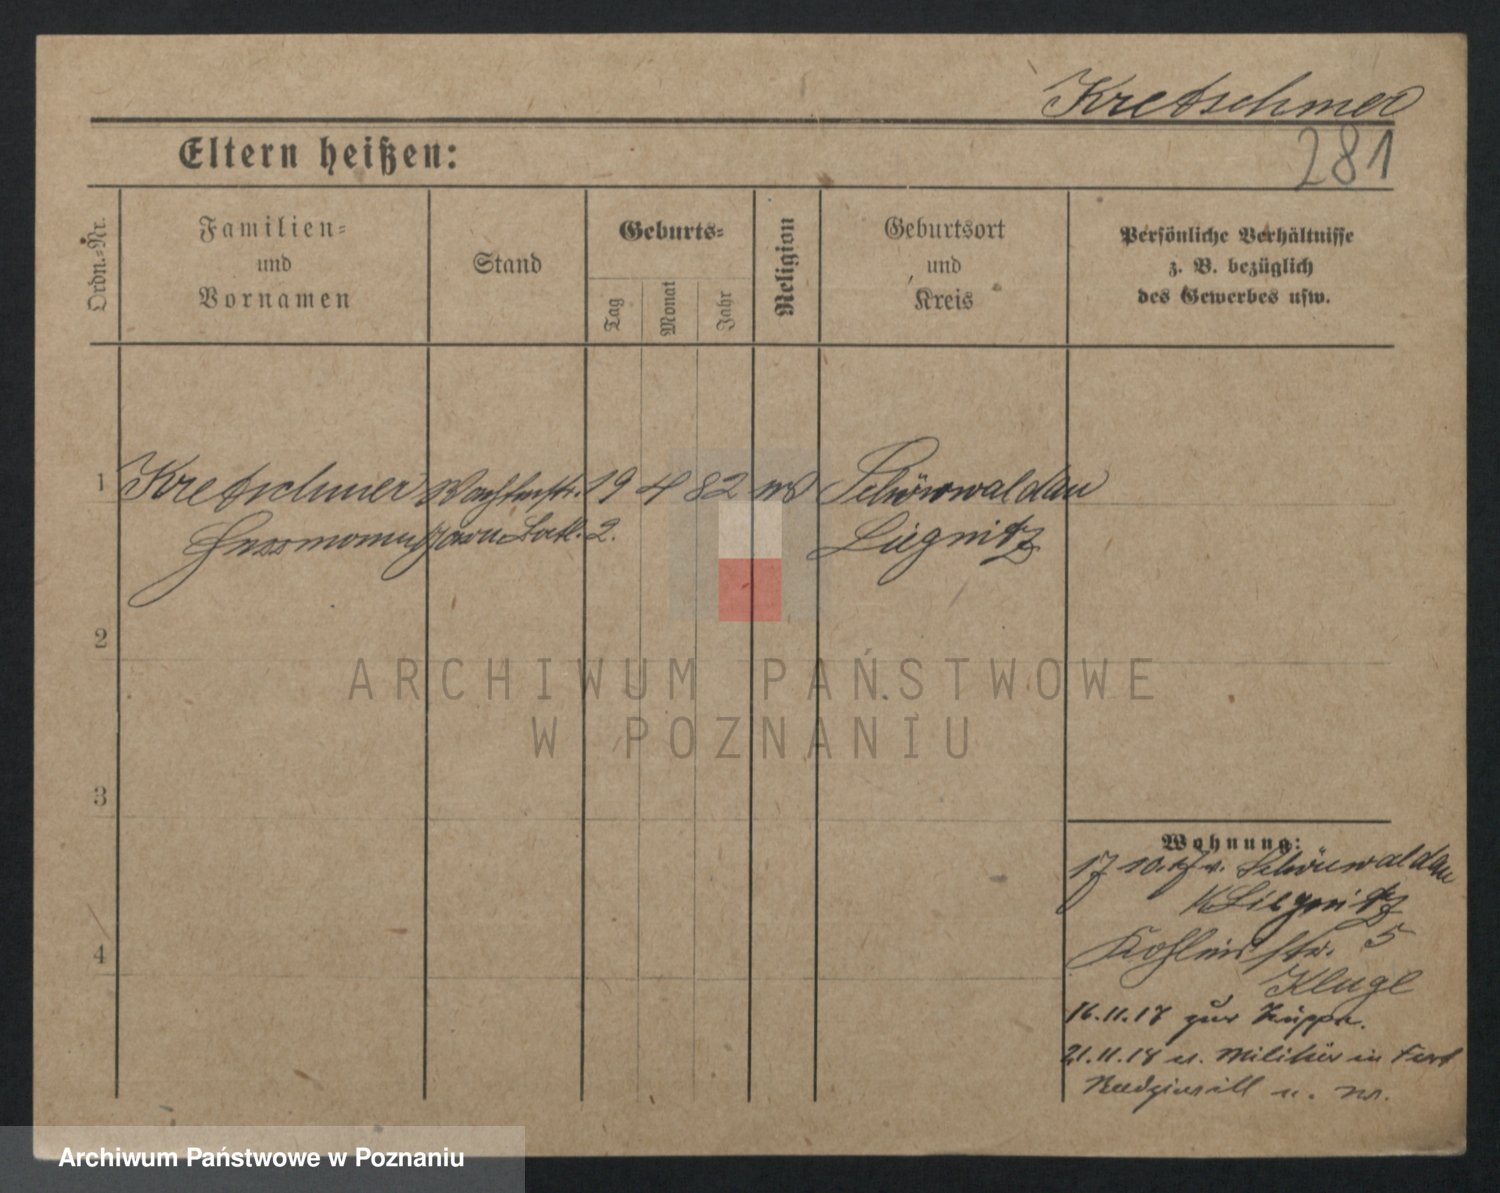 Kretschmer
281
Eltern heißen:
Ordn.-Nr.
Familien-
und
Vornamen
Stand
Geburts-
Tag
Monat
Jahr
Religion
Geburtsort
und
Kreis
Persönliche Verhältnisse
z. B. bezüglich
des Gewerbes usw.
1 Kretschmer 19 4 82 Schönwaldau
Hermann 2. Liegnitz
2
3
4
Wohnung:
17 10. 17 v. Schönwaldau
K Liegnitz
str. 5
Kluge
16.11.17 zur
21.11.18 u. Militär in Fort
u.
ARCHIWUM PAŃSTWOWE
W POZNANIU
Archiwum Państwowe w Poznaniu